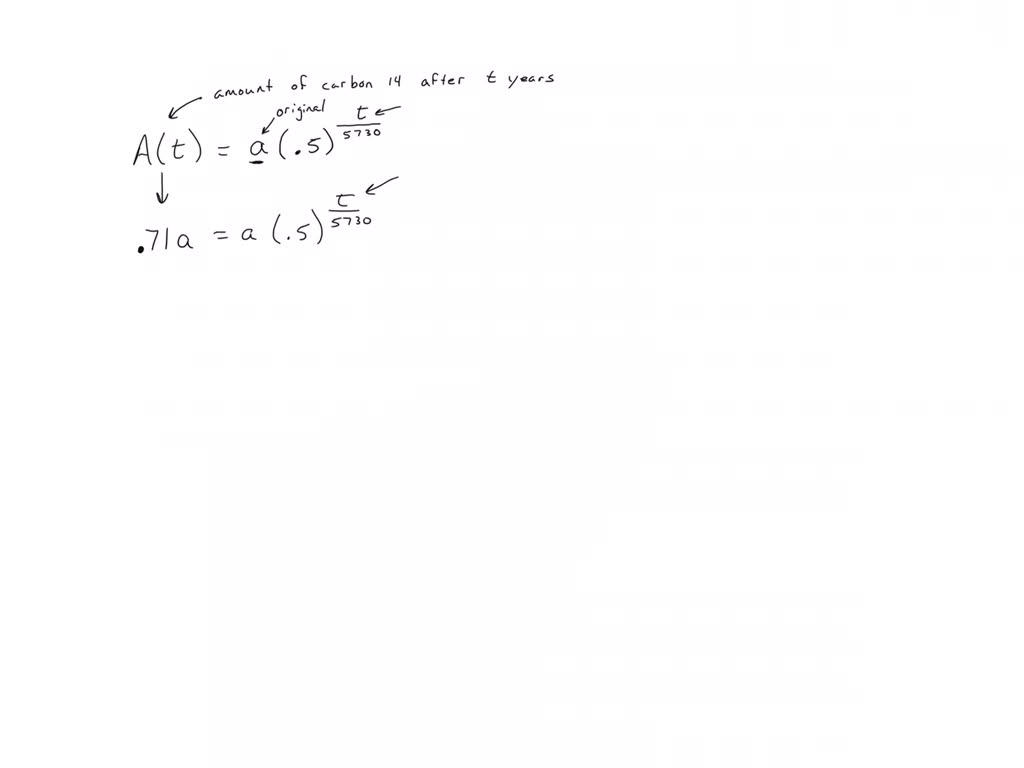 amount of carbon 14 after t years
original
A(t) = a (.5)^(t/5730)
.71a = a (.5)^(t/5730)